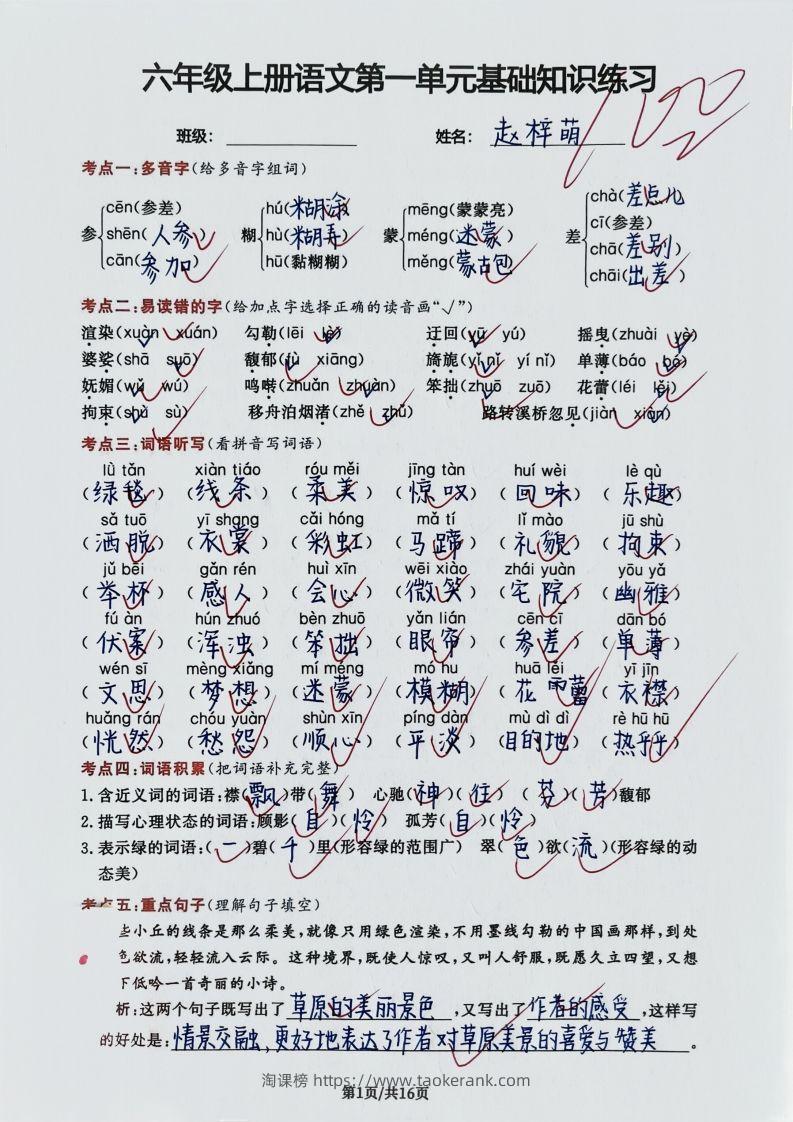 六年级上册语文第一单元基础知识练习
100
班级：          姓名：赵梓萌
考点一：多音字（给多音字组词）
参 cēn（参差） shēn（人参） cān（参加）
糊 hú（糊涂） hù（糊弄） hū（黏糊糊）
蒙 mēng（蒙蒙亮） méng（迷蒙） měng（蒙古包）
差 chà（差点儿） cī（参差） chā（差别） chāi（出差）
考点二：易读错的字（给加点字选择正确的读音画“√”）
渲染（xuàn√ xuán） 勾勒（lēi lè√） 迂回（yū√ yú） 摇曳（zhuài yè√）
婆娑（shā suō√） 馥郁（fù√ xiāng） 旖旎（yǐ nǐ√ yí nǐ） 单薄（báo bó√）
妩媚（wǔ√ wú） 鸣啭（zhuǎn zhuàn√） 笨拙（zhuō√ zuō） 花蕾（léi lěi√）
拘束（shù√ sù） 移舟泊烟渚（zhě zhǔ√） 路转溪桥忽见（jiàn xiàn√）
考点三：词语听写（看拼音写词语）
lǜ tǎn xiàn tiáo róu měi jīng tàn huí wèi lè qù
（绿毯）（线条）（柔美）（惊叹）（回味）（乐趣）
sǎ tuō yī shang cǎi hóng mǎ tí lǐ mào jū shù
（洒脱）（衣裳）（彩虹）（马蹄）（礼貌）（拘束）
jǔ bēi gǎn rén huì xīn wēi xiào zhái yuàn yōu yǎ
（举杯）（感人）（会心）（微笑）（宅院）（幽雅）
fú àn hún zhuó bèn zhuō yǎn lián cēn cī dān bó
（伏案）（浑浊）（笨拙）（眼帘）（参差）（单薄）
wén sī mèng xiǎng mí méng mó hu huā lěi yī jīn
（文思）（梦想）（迷蒙）（模糊）（花蕾）（衣襟）
huǎng rán chóu yuàn shùn xīn píng dàn mù dì dì rè hū hū
（恍然）（愁怨）（顺心）（平淡）（目的地）（热乎乎）
考点四：词语积累（把词语补充完整）
1. 含近义词的词语：襟（飘）带（舞） 心驰（神）（往） （芬）（芳）馥郁
2. 描写心理状态的词语：顾影（自）（怜） 孤芳（自）（怜）
3. 表示绿的词语：（一）碧（千）里（形容绿的范围广） 翠（色）欲（流）（形容绿的动
态美）
考点五：重点句子（理解句子填空）
些小丘的线条是那么柔美，就像只用绿色渲染，不用墨线勾勒的中国画那样，到处
色欲流，轻轻流入云际。这种境界，既使人惊叹，又叫人舒服，既愿久立四望，又想
下低吟一首奇丽的小诗。
析：这两个句子既写出了草原的美丽景色，又写出了作者的感受，这样写
的好处是：情景交融，更好地表达了作者对草原美景的喜爱与赞美。
淘课榜 https://www.taokerank.com
第1页/共16页